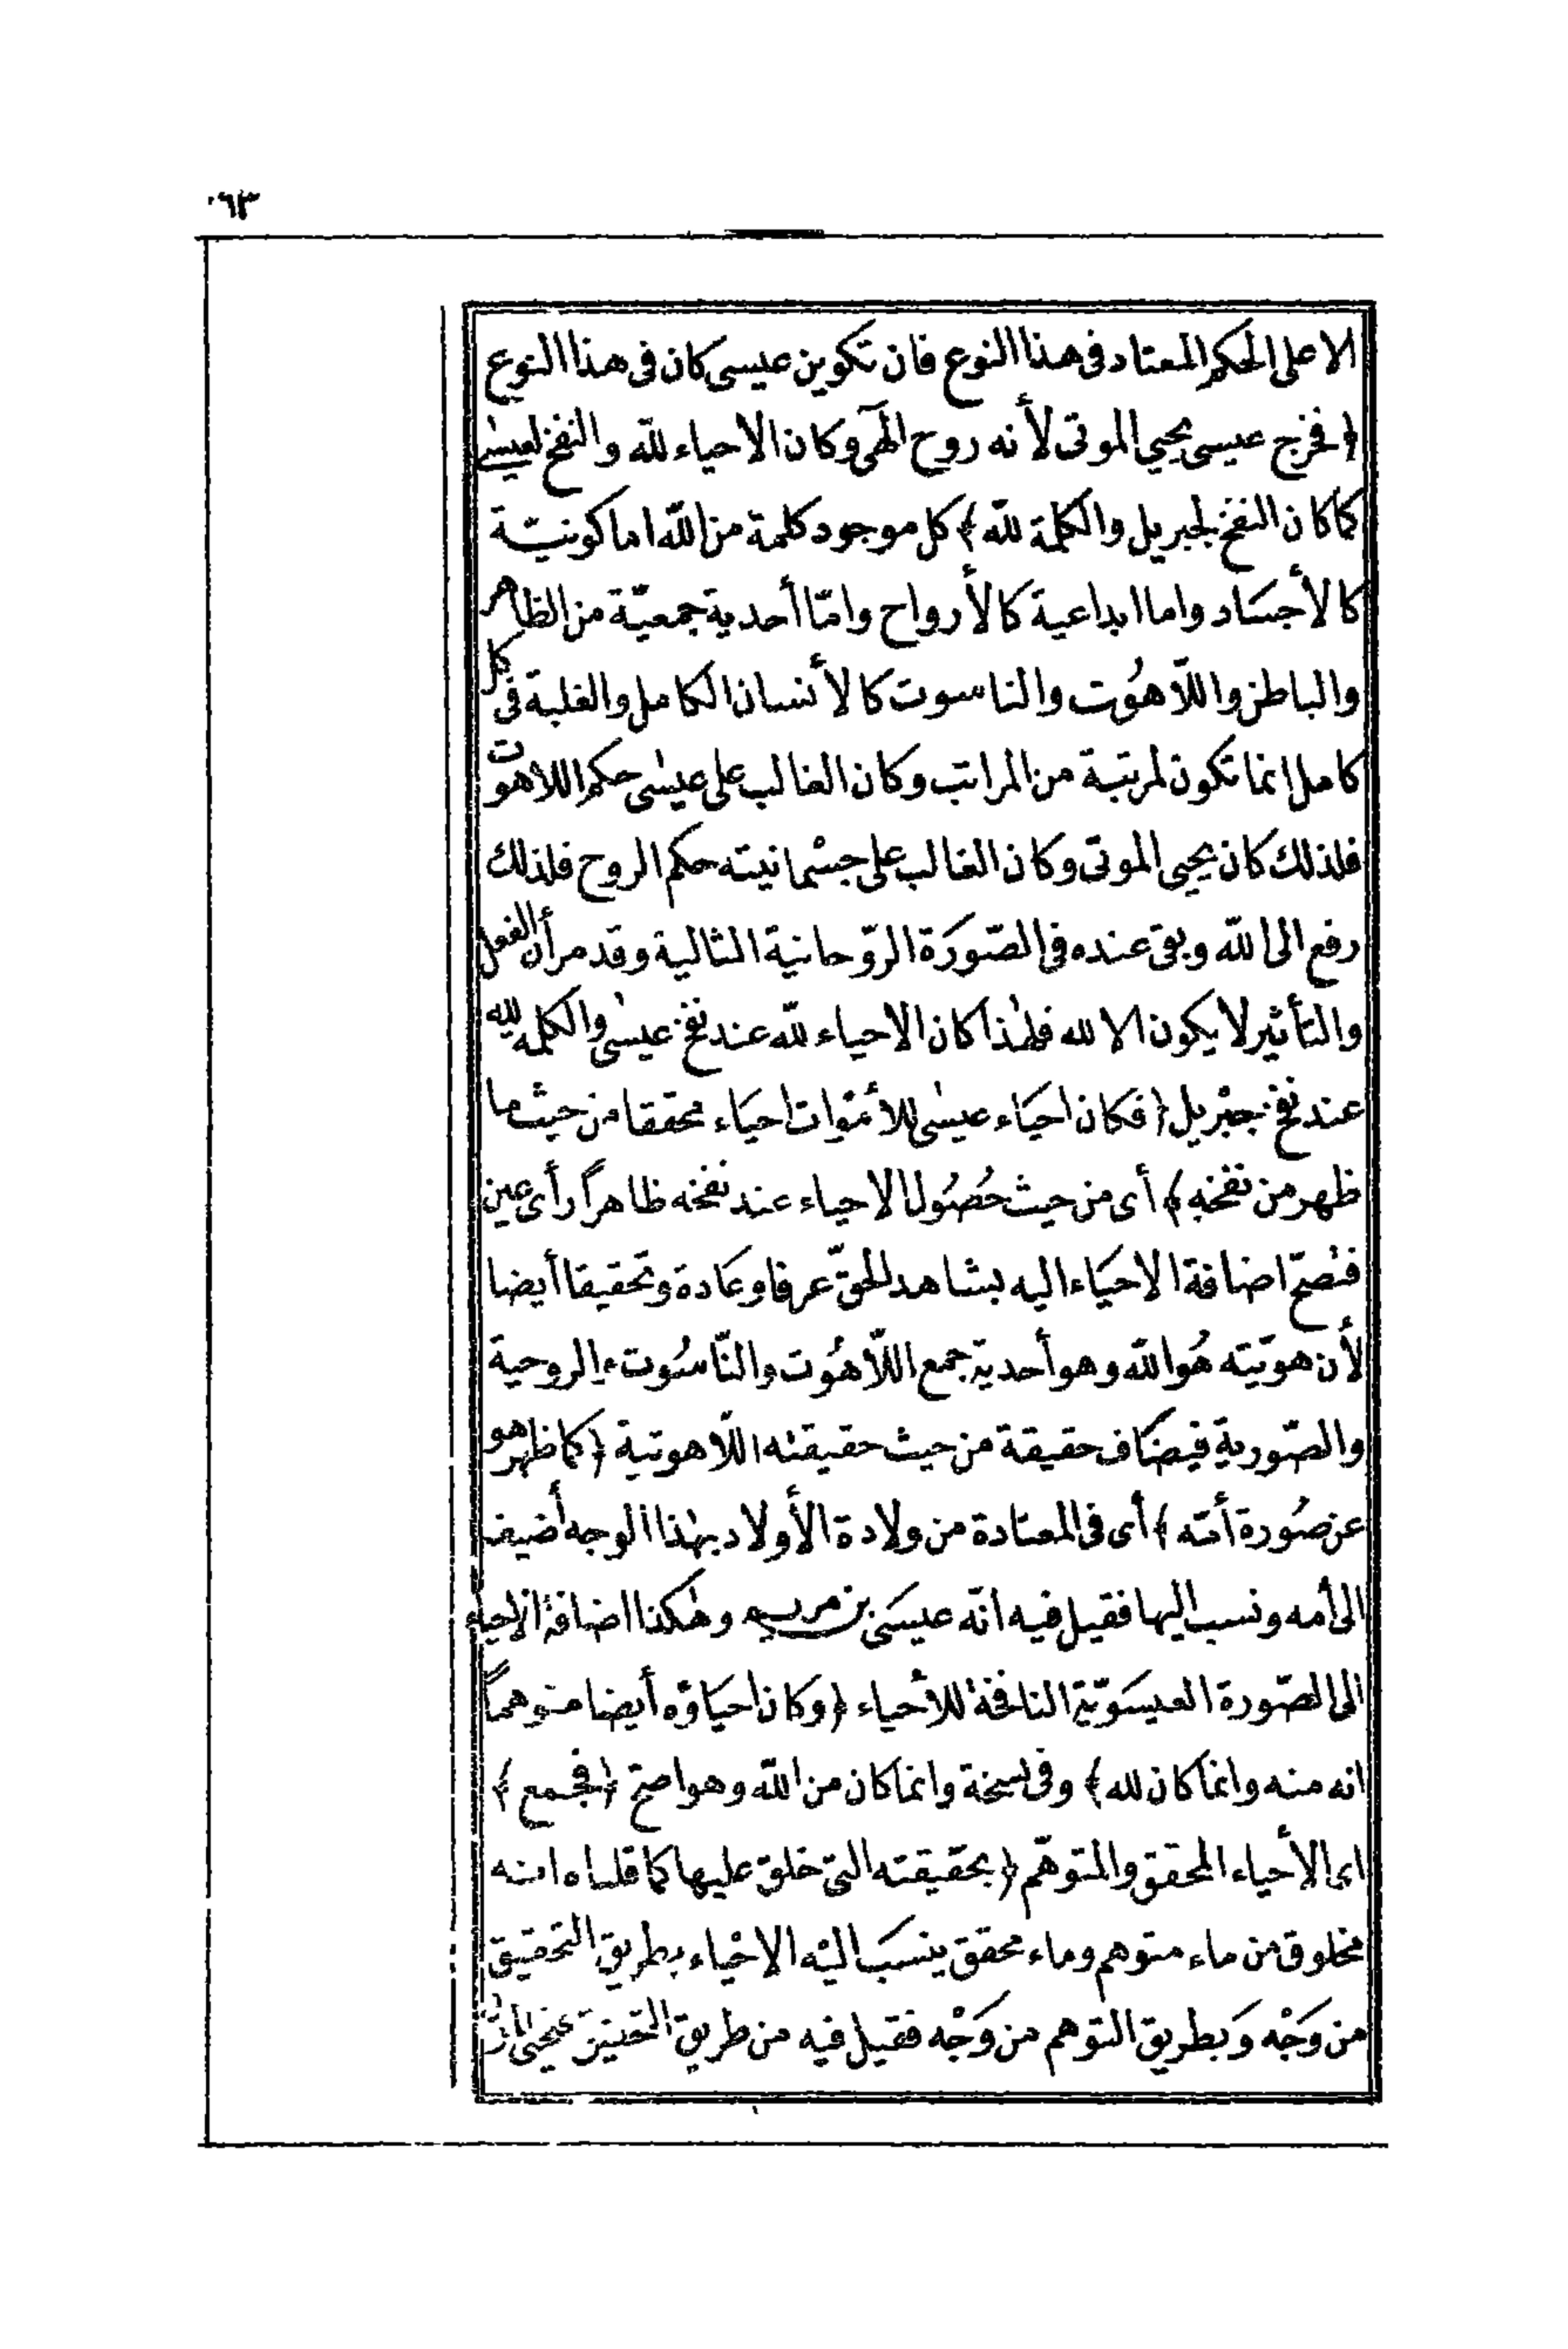 ٠٦٣
الا على الحكم المعتاد فى هذا النوع فان تكوين عيسى كان فى هذا النوع
﴿ فخرج عيسى يحيي الموتى لأنه روح الٓهى وكان الاحياء للّه والنفخ لعيسى
كما كان النفخ لجبريل والكلمة للّه ﴾ كل موجود كلمة من اللّه اما كونيّة
كالأجسَاد واما ابداعية كالأرواح وامّا أحدية جمعيّة من الظاهر
والباطن واللّاهُوت والناسوت كالأنسان الكامل والغلبة فى كل
كامل انما تكون لمرتبة من المراتب وكان الغالب على عيسٰى حكم اللاهوت
فلذلك كان يحيى الموتى وكان الغالب على جسْمانيته حكم الروح فلذلك
رفع الى اللّه وبقى عنده فى الصّورَة الروّحانية المثالية وقد مر أن الفعل
والتأثير لا يكون الا لله فلهٰذا كان الاحياء للّه عند نفخ عيسٰى والكلمه لله
عند نفخ جبْريل ﴿ فكان احيَاء عيسٰى للأمْوات احيَاء محققا من حيث ما
ظهر من نفْخهِ ﴾ أى من حيث حُصُول الاحياء عند نفخه ظاهراً رأى عين
فتصحّ اضافة الاحيَاء اليه بشاهد الحقّ عرفا وعَادة وتحقيقا أيضا
لأن هويّته هُو اللّه وهو أحدية جمع اللّاهُوت والنّاسُوت والروحية
والصّورية فيضَاف حقيقة من حيث حقيقته اللّاهوتية ﴿ كما ظهر هو
عن صُورة أمّه ﴾ أى فى المعتادة من ولادة الأولاد بهٰذا الوجه أضيف
الى أمه ونسب اليها فقيل فيه انّه عيسَى بن مريم وهٰكذا اضافة الاحياء
الى الصّورة العيسَويّة النافخة للأحياء ﴿ وكان احيَاؤه أيضا متوهماً
انه منه وانما كان لله ﴾ وفى نسخة وانما كان من اللّه وهو اصحّ ﴿ فجمع ﴾
اى الأحياء المحقق والمتوهّم ﴿ بحقيقته التى خلق عليها كما قلناه انه
مخلوق من ماء متوهم وماء محقق ينسَب اليْه الاحْياء بطريق التحقيق
من وَجْه وَبطريق التوهم من وَجْه فقيل فيه من طريق التحقيق